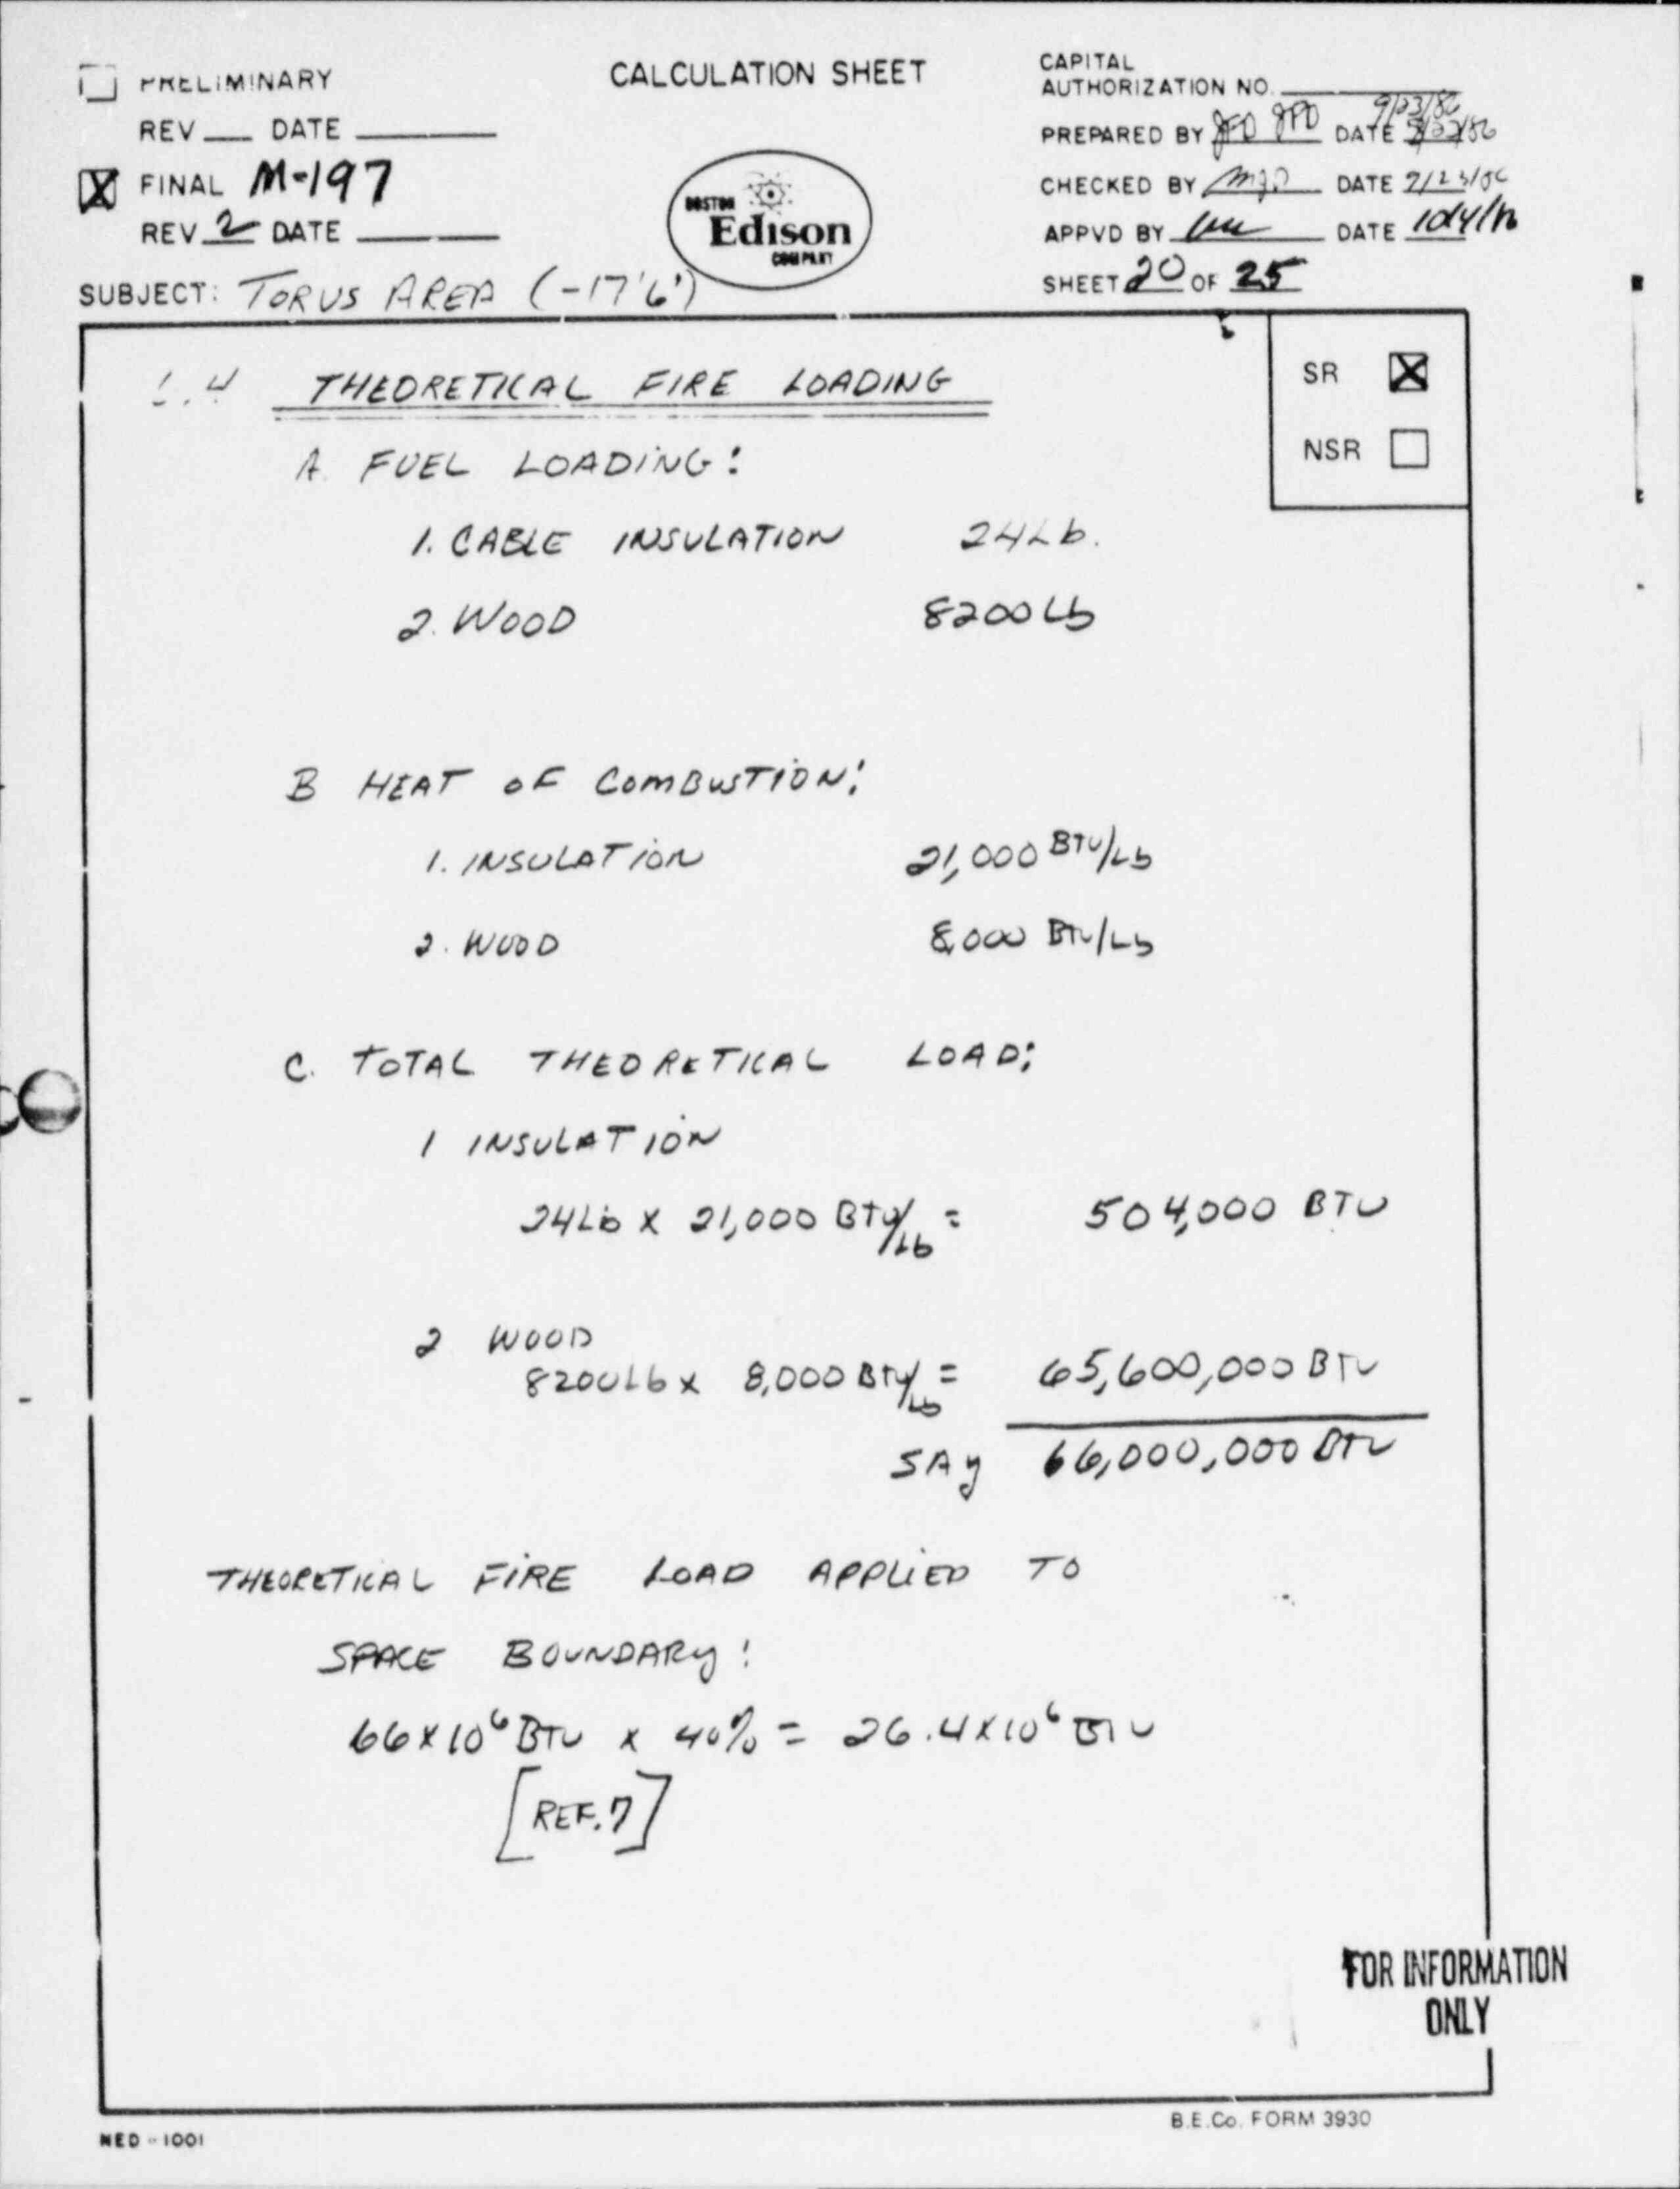 PRELIMINARY
REV DATE
FINAL M-197
REV 2 DATE
SUBJECT: TORUS AREA (-17'6")
CALCULATION SHEET
BOSTON
Edison
COMPANY
CAPITAL
AUTHORIZATION NO.
PREPARED BY JFD JPD DATE 9/23/86
CHECKED BY DATE
APPVD BY DATE
SHEET 20 OF 25
SR
NSR
THEORETICAL FIRE LOADING
A. FUEL LOADING:
1. CABLE INSULATION 24Lb.
2. WOOD 8200 Lb
B HEAT OF COMBUSTION:
1. INSULATION 21,000 BTU/Lb
2. WOOD 8,000 BTU/Lb
C. TOTAL THEORETICAL LOAD:
1 INSULATION
24Lb X 21,000 BTU/Lb = 504,000 BTU
2 WOOD
8200Lb x 8,000 BTU/Lb = 65,600,000 BTU
SAY 66,000,000 BTU
THEORETICAL FIRE LOAD APPLIED TO
SPACE BOUNDARY:
66x10⁶ BTU x 40% = 26.4x10⁶ BTU
[REF. 7]
FOR INFORMATION
ONLY
NED - 1001
B.E.Co. FORM 3930